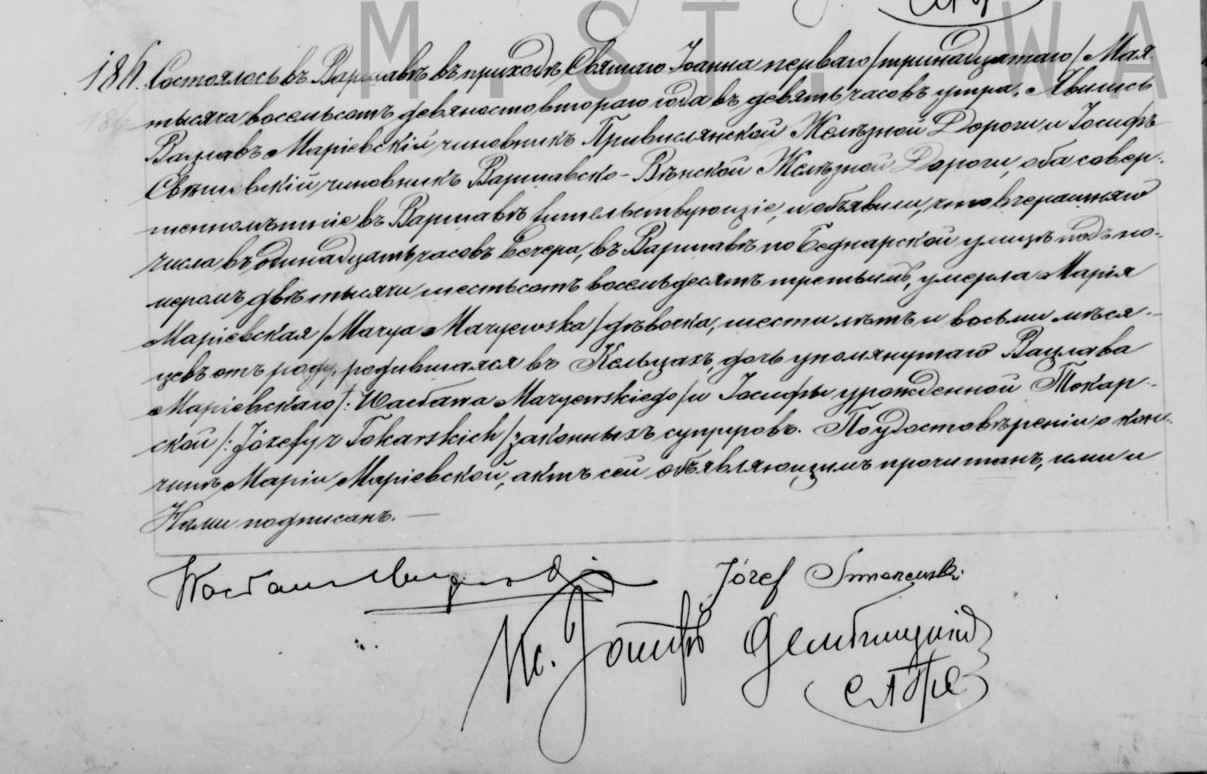 M ST. WA
184. Состоялось въ Варшавѣ въ приходѣ Святаго Іоанна перваго /тринадцатаго/ Мая
тысяча восемьсотъ девяносто втораго года въ девять часовъ утра. Явились
Вацлавъ Маріевскій, чиновникъ Привислянской Желѣзной Дороги и Іосифъ
чиновникъ Варшавско-Вѣнской Желѣзной Дороги, оба совер-
шеннолѣтніе въ Варшавѣ жительствующіе, и объявили, что вчерашняго
числа въ одинадцать часовъ вечера, въ Варшавѣ по Беднарской улицѣ подъ но-
меромъ двѣ тысячи шестьсотъ восемьдесятъ третьимъ, умерла Марія
Маріевская /Marya Maryewska/ дѣвочка, шести лѣтъ и восьми мѣся-
цевъ отъ роду, родившаяся въ Кельцахъ, дочь упомянутаго Вацлава
Маріевскаго /: Wacława Maryewskiego/ и Іосифы урожденной Токар-
ской /: Józefy z Tokarskich/ законныхъ супруговъ. По удостовѣреніи о кон-
чинѣ Маріи Маріевской, актъ сей объявляющимъ прочитанъ, ими и
Нами подписанъ. —
Wacław Józef
Кс. Іосифъ